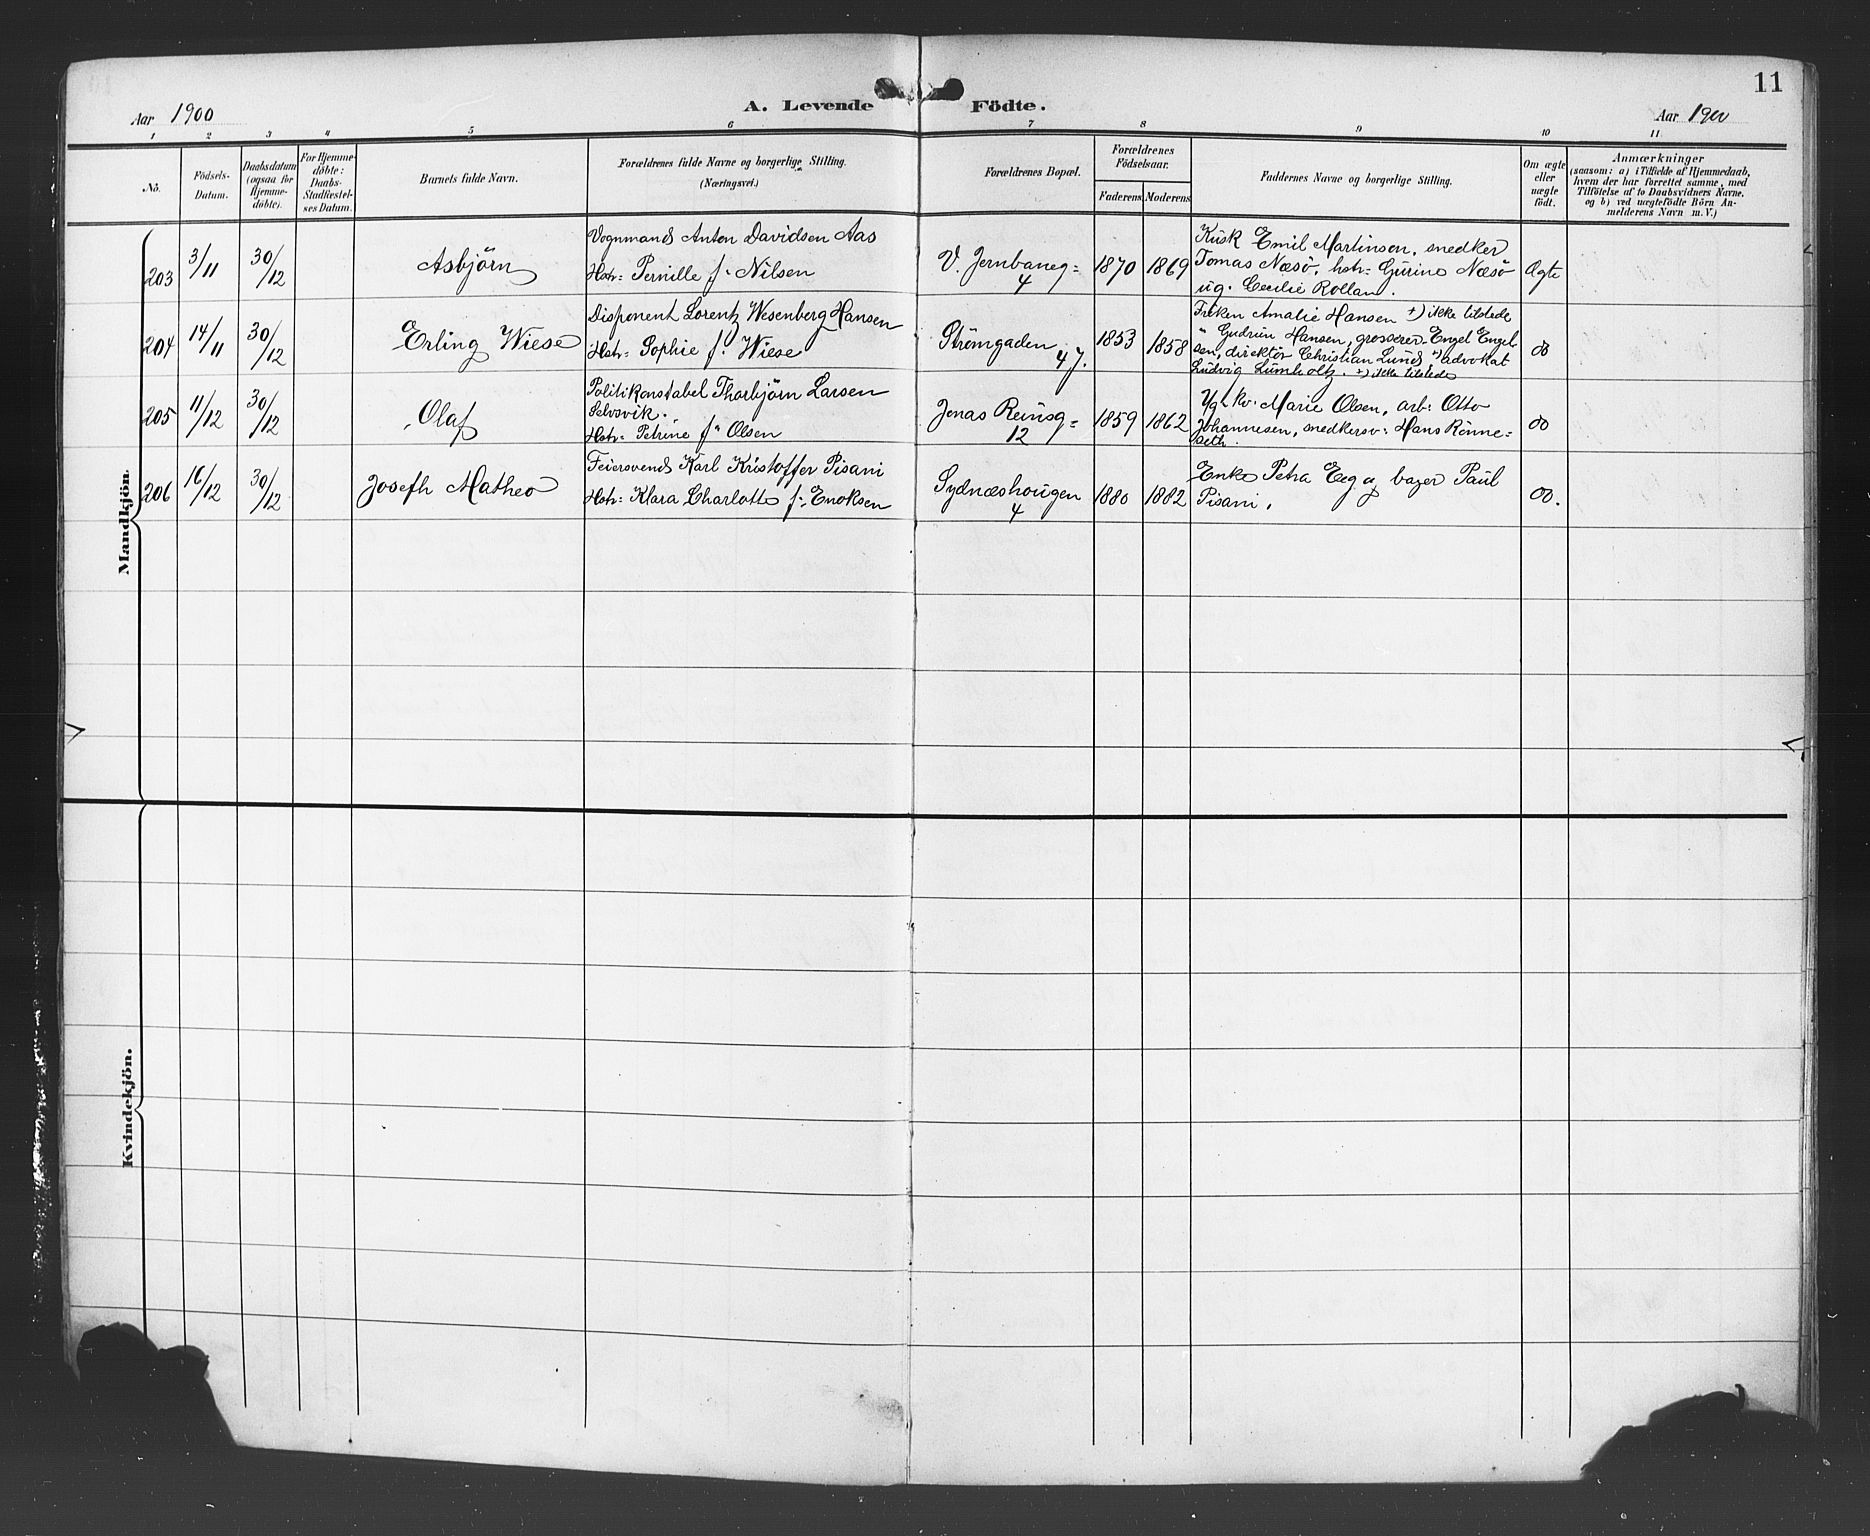 11
Aar 1900
A. Levende Födte.
Aar 1900
1 2 3 4 5 6 7 8 9 10 11
No.
Födsels-
Datum.
Daabsdatum
(ogsaa for
Hjemme-
döbte).
For Hjemme-
döbte:
Daabs-
Stadfæstel-
ses Datum.
Barnets fulde Navn.
Forældrenes fulde Navne og borgerlige Stilling.
(Næringsvei.)
Forældrenes Bopæl.
Forældrenes
Födselsaar.
Faderens
Moderens
Faddernes Navne og borgerlige Stilling.
Om ægte
eller
uægte
födt.
Anmærkninger
(saasom: a) i Tilfælde af Hjemmedaab,
hvem der har forrettet samme, med
Tilföielse af to Daabsvidners Navne.
og b) ved uægtefödte Börn An-
melderens Navn m. V.)
Mandkjön.
203
3/11
30/12
Asbjörn
Vognmand Anton Davidsen Aas
Hstr: Pernille f. Nilsen
V. Jernbaneg=
4
1870
1869
Kusk Emil Martinsen, snedker
Tomas Næsö, hstr: Gurine Næsö
ug. Cecilie Rolland.
Ægte
204
14/11
30/12
Erling Wiese
Disponent Lorentz Wesenberg Hansen
Hstr: Sophie f. Wiese
Strömgaden
47.
1853
1858
Fröken Amalie Hansen +) ikke tilstede
" Gudrun Hansen, grosserer Engel Engel-
sen, direktör Christian Lund +) advokat
Ludvig Lumholtz. +) ikke tilstede
do
205
11/12
30/12
Olaf
Politikonstabel Thorbjörn Larsen
Selvsvik.
Hstr: Petrine f. Olsen
Jonas Reinsg=
12
1859
1862
Ygl. kv. Marie Olsen, arb: Otto
Johannesen, snedkersv: Hans Rönne=
seth.
do
206
16/12
30/12
Joseph Matheo
Feiersvend Karl Kristoffer Pisani
Hstr: Klara Charlotte f. Enoksen
Sydnæshougen
4
1880
1882
Enke Petra Eeg og bager Paul
Pisani.
do.
Kvindekjön.